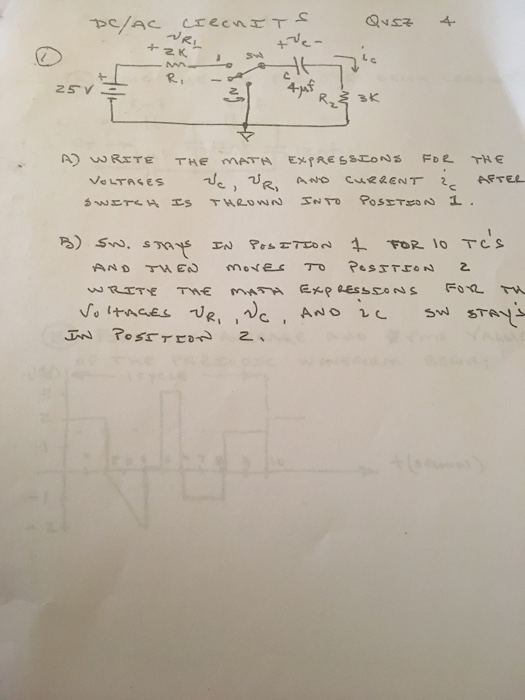 DC/AC CIRCUITS QUIZ 4
1
+ VR1 -
2K
R1
25V
+
1
SW
2
+ Vc -
C
4μf
ic
R2
3K
A) WRITE THE MATH EXPRESSIONS FOR THE
VOLTAGES Vc, VR1 AND CURRENT ic AFTER
SWITCH IS THROWN INTO POSITION 1.
B) SW. STAYS IN POSITION 1 FOR 10 TC'S
AND THEN MOVES TO POSITION 2
WRITE THE MATH EXPRESSIONS FOR TH
VOLTAGES VR1, Vc, AND ic SW STAYS
IN POSITION 2.